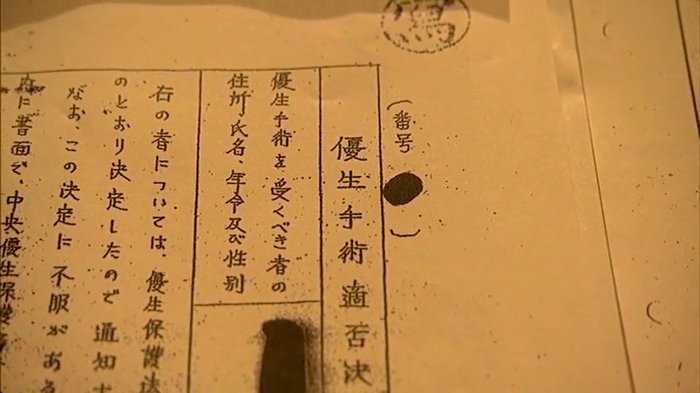 （番号　）
優生手術適否決
優生手術を受くべき者の
住所氏名、年令及び性別
右の者については、優生保護法
のとおり決定したので通知す
なお、この決定に不服がある
内に書面で、中央優生保護